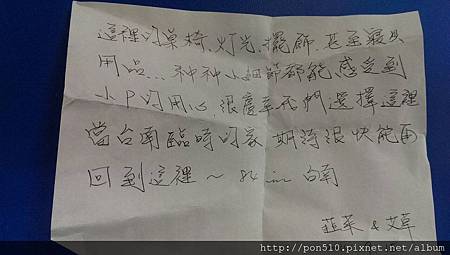 這裡的桌椅、灯光、擺飾、甚至寢具
用品…种种小細節都能感受到
小P的用心, 很慶幸我們選擇這裡
當台南臨時的家 期待很快能再
回到這裡～ in 台南
韮菜 & 艾草
http://pon510.pixnet.net/album